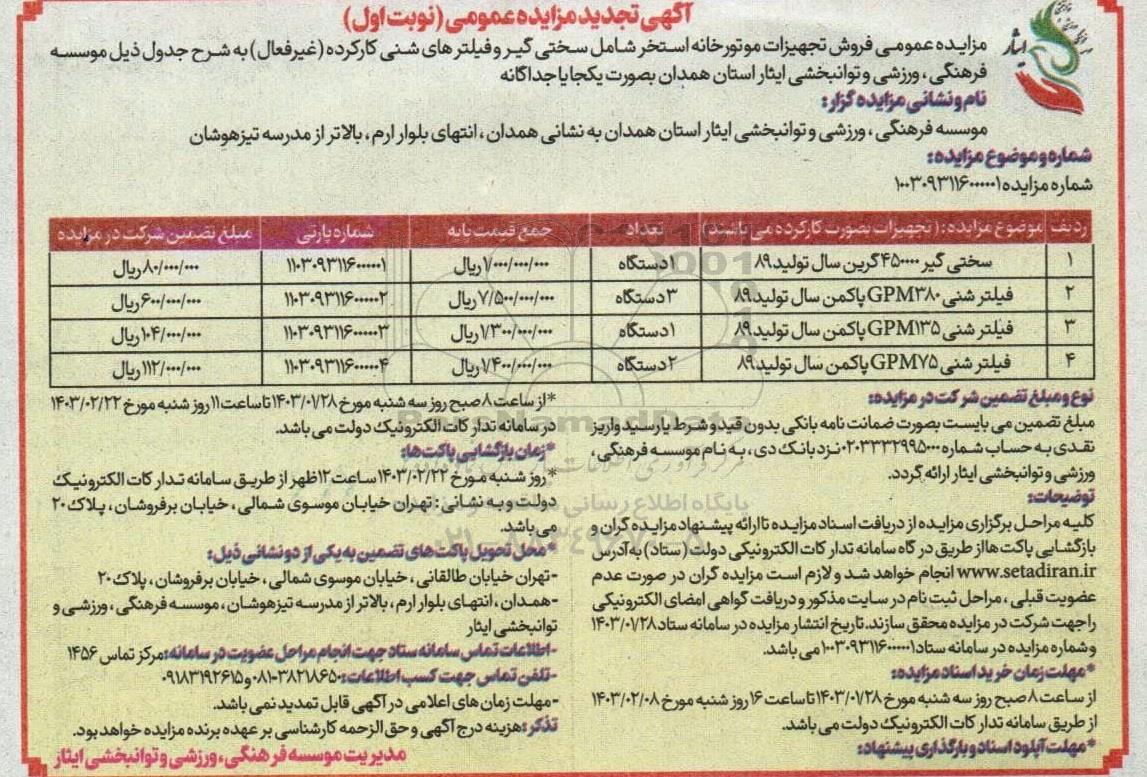 آگهی تجدید مزایده عمومی (نوبت اول)
ایثار
مزایده عمومی فروش تجهیزات موتورخانه استخر شامل سختی گیر و فیلتر های شنی کارکرده (غیرفعال) به شرح جدول ذیل موسسه
فرهنگی، ورزشی و توانبخشی ایثار استان همدان بصورت یکجا یا جداگانه
نام و نشانی مزایده گزار:
موسسه فرهنگی، ورزشی و توانبخشی ایثار استان همدان به نشانی همدان، انتهای بلوار ارم، بالاتر از مدرسه تیزهوشان
شماره و موضوع مزایده:
شماره مزایده ۱۰۰۳۰۹۳۱۱۶۰۰۰۰۰۱
ردیف | موضوع مزایده: (تجهیزات بصورت کارکرده می باشند) | تعداد | جمع قیمت پایه | شماره پارتی | مبلغ تضمین شرکت در مزایده
۱ | سختی گیر ۴۵۰۰۰۰ گرین سال تولید ۸۹ | ۱ دستگاه | ۱/۰۰۰/۰۰۰/۰۰۰ ریال | ۱۱۰۳۰۹۳۱۱۶۰۰۰۰۰۱ | ۸۰/۰۰۰/۰۰۰ ریال
۲ | فیلتر شنی GPM۳۸۰ پاکمن سال تولید ۸۹ | ۳ دستگاه | ۷/۵۰۰/۰۰۰/۰۰۰ ریال | ۱۱۰۳۰۹۳۱۱۶۰۰۰۰۰۲ | ۶۰۰/۰۰۰/۰۰۰ ریال
۳ | فیلتر شنی GPM۱۳۵ پاکمن سال تولید ۸۹ | ۱ دستگاه | ۱/۳۰۰/۰۰۰/۰۰۰ ریال | ۱۱۰۳۰۹۳۱۱۶۰۰۰۰۰۳ | ۱۰۴/۰۰۰/۰۰۰ ریال
۴ | فیلتر شنی GPM۷۵ پاکمن سال تولید ۸۹ | ۲ دستگاه | ۱/۴۰۰/۰۰۰/۰۰۰ ریال | ۱۱۰۳۰۹۳۱۱۶۰۰۰۰۰۴ | ۱۱۲/۰۰۰/۰۰۰ ریال
نوع و مبلغ تضمین شرکت در مزایده:
مبلغ تضمین می بایست بصورت ضمانت نامه بانکی بدون قید و شرط یا رسید واریز
نقدی به حساب شماره ۰۲۰۳۳۳۲۹۹۵۰۰۰ نزد بانک دی، به نام موسسه فرهنگی،
ورزشی و توانبخشی ایثار ارائه گردد.
توضیحات:
کلیه مراحل برگزاری مزایده از دریافت اسناد مزایده تا ارائه پیشنهاد مزایده گران و
بازگشایی پاکت ها از طریق در گاه سامانه تدارکات الکترونیکی دولت (ستاد) به آدرس
www.setadiran.ir انجام خواهد شد و لازم است مزایده گران در صورت عدم
عضویت قبلی، مراحل ثبت نام در سایت مذکور و دریافت گواهی امضای الکترونیکی
را جهت شرکت در مزایده محقق سازند. تاریخ انتشار مزایده در سامانه ستاد ۱۴۰۳/۰۱/۲۸
و شماره مزایده در سامانه ستاد ۱۰۰۳۰۹۳۱۱۶۰۰۰۰۰۱ می باشد.
*مهلت زمان خرید اسناد مزایده:
از ساعت ۸ صبح روز سه شنبه مورخ ۱۴۰۳/۰۱/۲۸ تا ساعت ۱۶ روز شنبه مورخ ۱۴۰۳/۰۲/۰۸
از طریق سامانه تدارکات الکترونیک دولت می باشد.
*مهلت آپلود اسناد و بارگذاری پیشنهاد:
*از ساعت ۸ صبح روز سه شنبه مورخ ۱۴۰۳/۰۱/۲۸ تا ساعت ۱۱ روز شنبه مورخ ۱۴۰۳/۰۲/۲۲
در سامانه تدارکات الکترونیک دولت می باشد.
*زمان بازگشایی پاکت ها:
*روز شنبه مورخ ۱۴۰۳/۰۲/۲۲ ساعت ۱۲ ظهر از طریق سامانه تدارکات الکترونیک
دولت و به نشانی: تهران خیابان موسوی شمالی، خیابان برفروشان، پلاک ۲۰
می باشد.
*محل تحویل پاکت های تضمین به یکی از دو نشانی ذیل:
-تهران خیابان طالقانی، خیابان موسوی شمالی، خیابان برفروشان، پلاک ۲۰
-همدان، انتهای بلوار ارم، بالاتر از مدرسه تیزهوشان، موسسه فرهنگی، ورزشی و
توانبخشی ایثار
-اطلاعات تماس سامانه ستاد جهت انجام مراحل عضویت در سامانه: مرکز تماس ۱۴۵۶
-تلفن تماس جهت کسب اطلاعات: ۰۸۱-۳۸۲۱۸۶۵۰ و ۰۹۱۸۳۱۹۲۶۱۵
-مهلت زمان های اعلامی در آگهی قابل تمدید نمی باشد.
تذکر: هزینه درج آگهی و حق الزحمه کارشناسی بر عهده برنده مزایده خواهد بود.
مدیریت موسسه فرهنگی، ورزشی و توانبخشی ایثار
ParsNamadData
پایگاه اطلاع رسانی